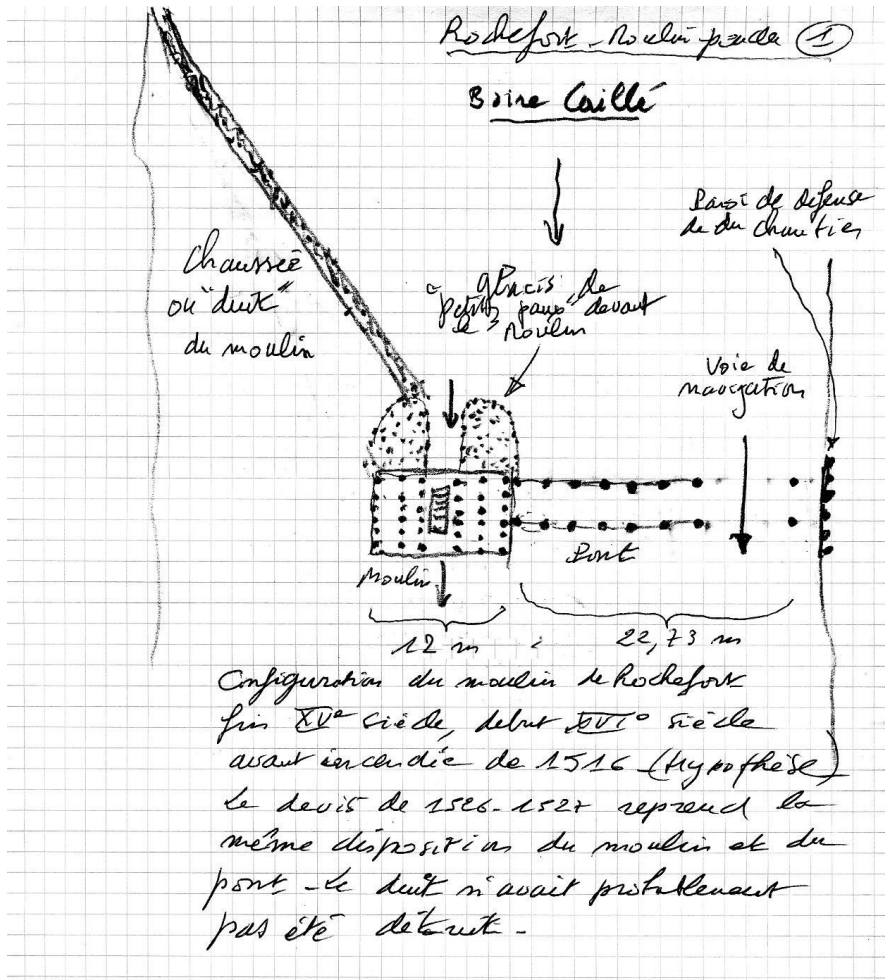 Rochefort - Moulin pendu ①
Boire Caillé
Paroi de défense
de du chantier
Chaussée
ou "duit"
du moulin
glacis de
"petits paux" devant
le Moulin
Voie de
navigation
Pont
Moulin
12 m
22,73 m
Configuration du moulin de Rochefort
fin XVe siècle, debut XVI° siècle
avant incendie de 1516 (Hypothèse)
Le devis de 1526-1527 reprend la
même disposition du moulin et du
pont - Le duit n'avait probablement
pas été détruit -